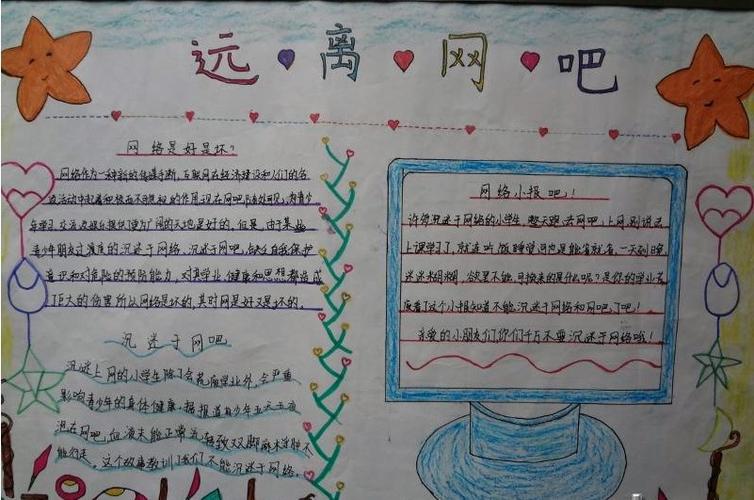 远离网吧
网络是好是坏?
网络作为一种新的传媒手断,互联网在经济建设和人们的各
项活动中起着积极而不 的作用,现在网吧随处可见,为青少
年学习、交流及娱乐提供了更为广阔的天地是好的。但是,由于某些
青少年朋友过度的沉迷于网络,沉迷于网吧,缺乏自我保护
意识和对危险的预防能力,对其学业、健康和思想都造成
了巨大的伤害所以网络是坏的,其时网是好又是坏的。
沉迷于网吧
沉迷上网的小学生除了会荒废学业外,会严重
影响青少年的身体健康,据报道有少年五天五夜
泡在网吧,血液未能正常 导致双脚麻木浮肿不
能行走。这个故事教训了我们不能沉迷于网络。
网络小报吧!
许多沉迷于网络的小学生,整天跑去网吧,上网,别说去
上课学习了,就连吃饭睡觉可也是能省就省,一天到晚
迷迷糊糊,欲罢不能,可换来的是什么呢?是你的学业荒
废看了这个小报知道不能沉迷于网络和网吧了吧!
亲爱的小朋友们你们千万不要沉迷于网络哦!